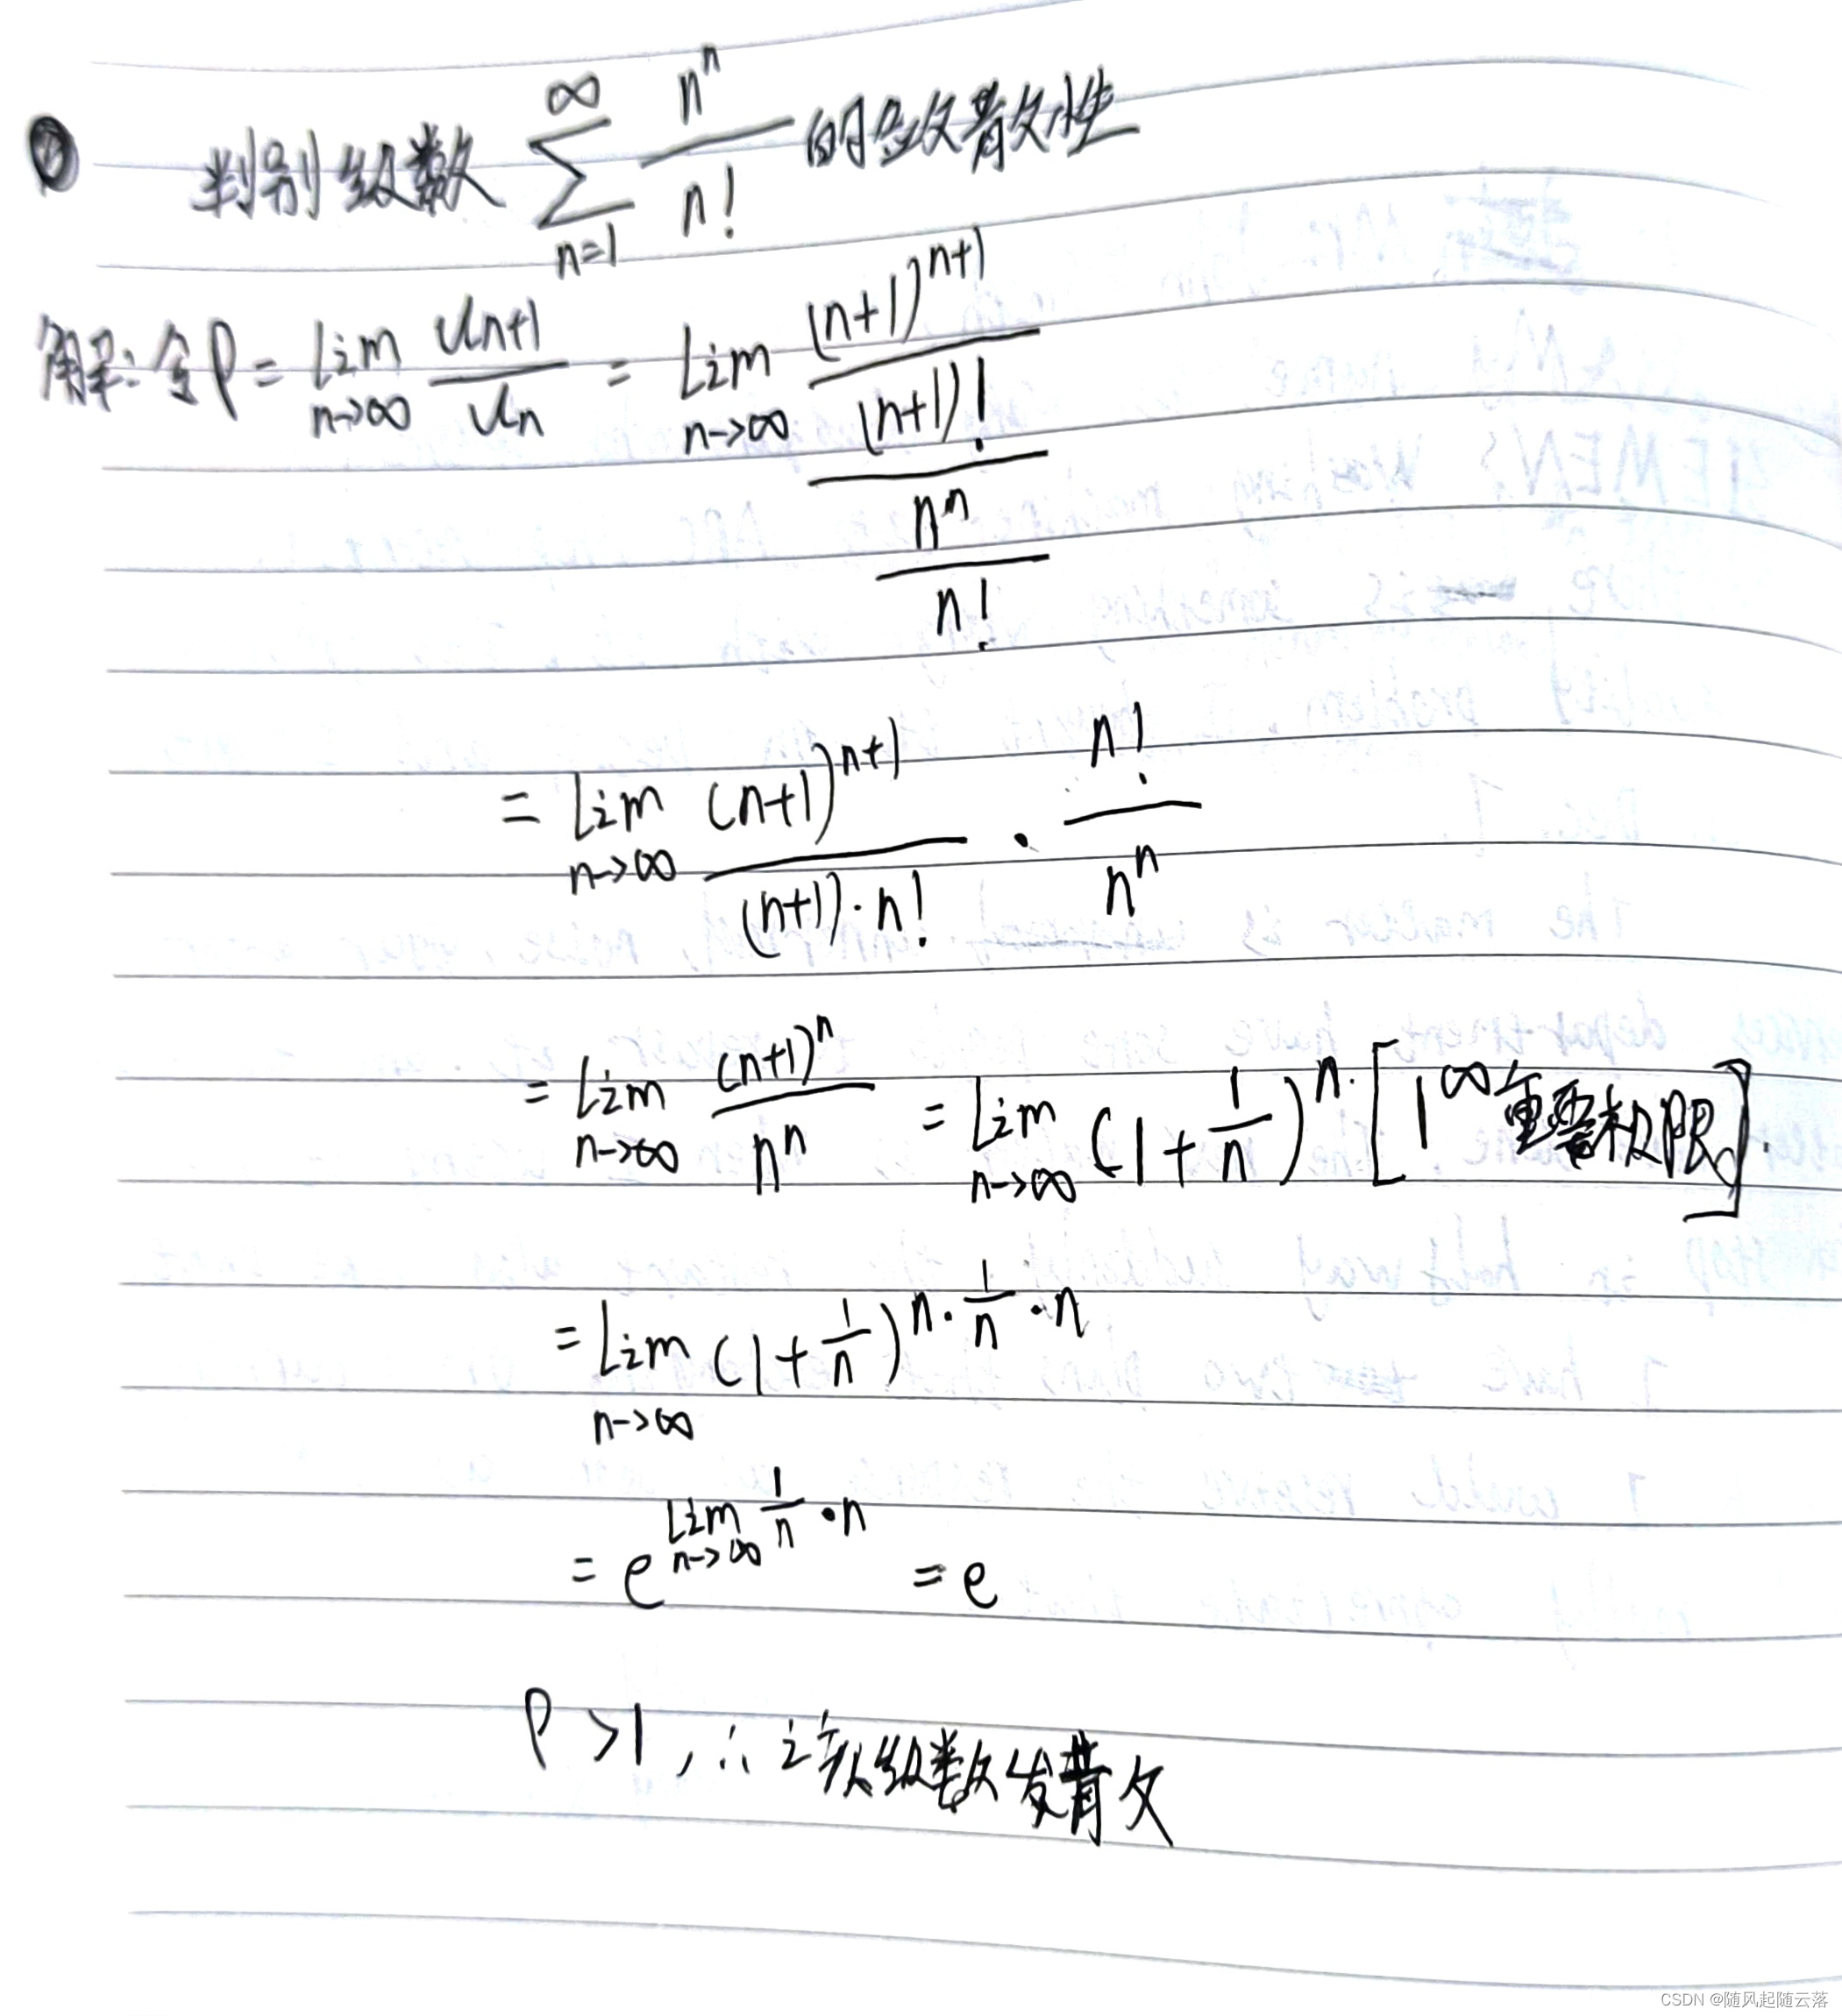 判别级数 ∑_{n=1}^{∞} n^n / n! 的敛散性
解: 令 ρ = lim_{n→∞} u_{n+1} / u_n = lim_{n→∞} ((n+1)^{n+1} / (n+1)!) / (n^n / n!)
= lim_{n→∞} (n+1)^{n+1} / ((n+1)·n!) · n! / n^n
= lim_{n→∞} (n+1)^n / n^n = lim_{n→∞} (1+1/n)^n. [1^∞重要极限].
= lim_{n→∞} (1+1/n)^{n·1/n·n}
= e^{lim_{n→∞} 1/n·n} = e
ρ>1, ∴ 该级数发散
CSDN @随风起随云落